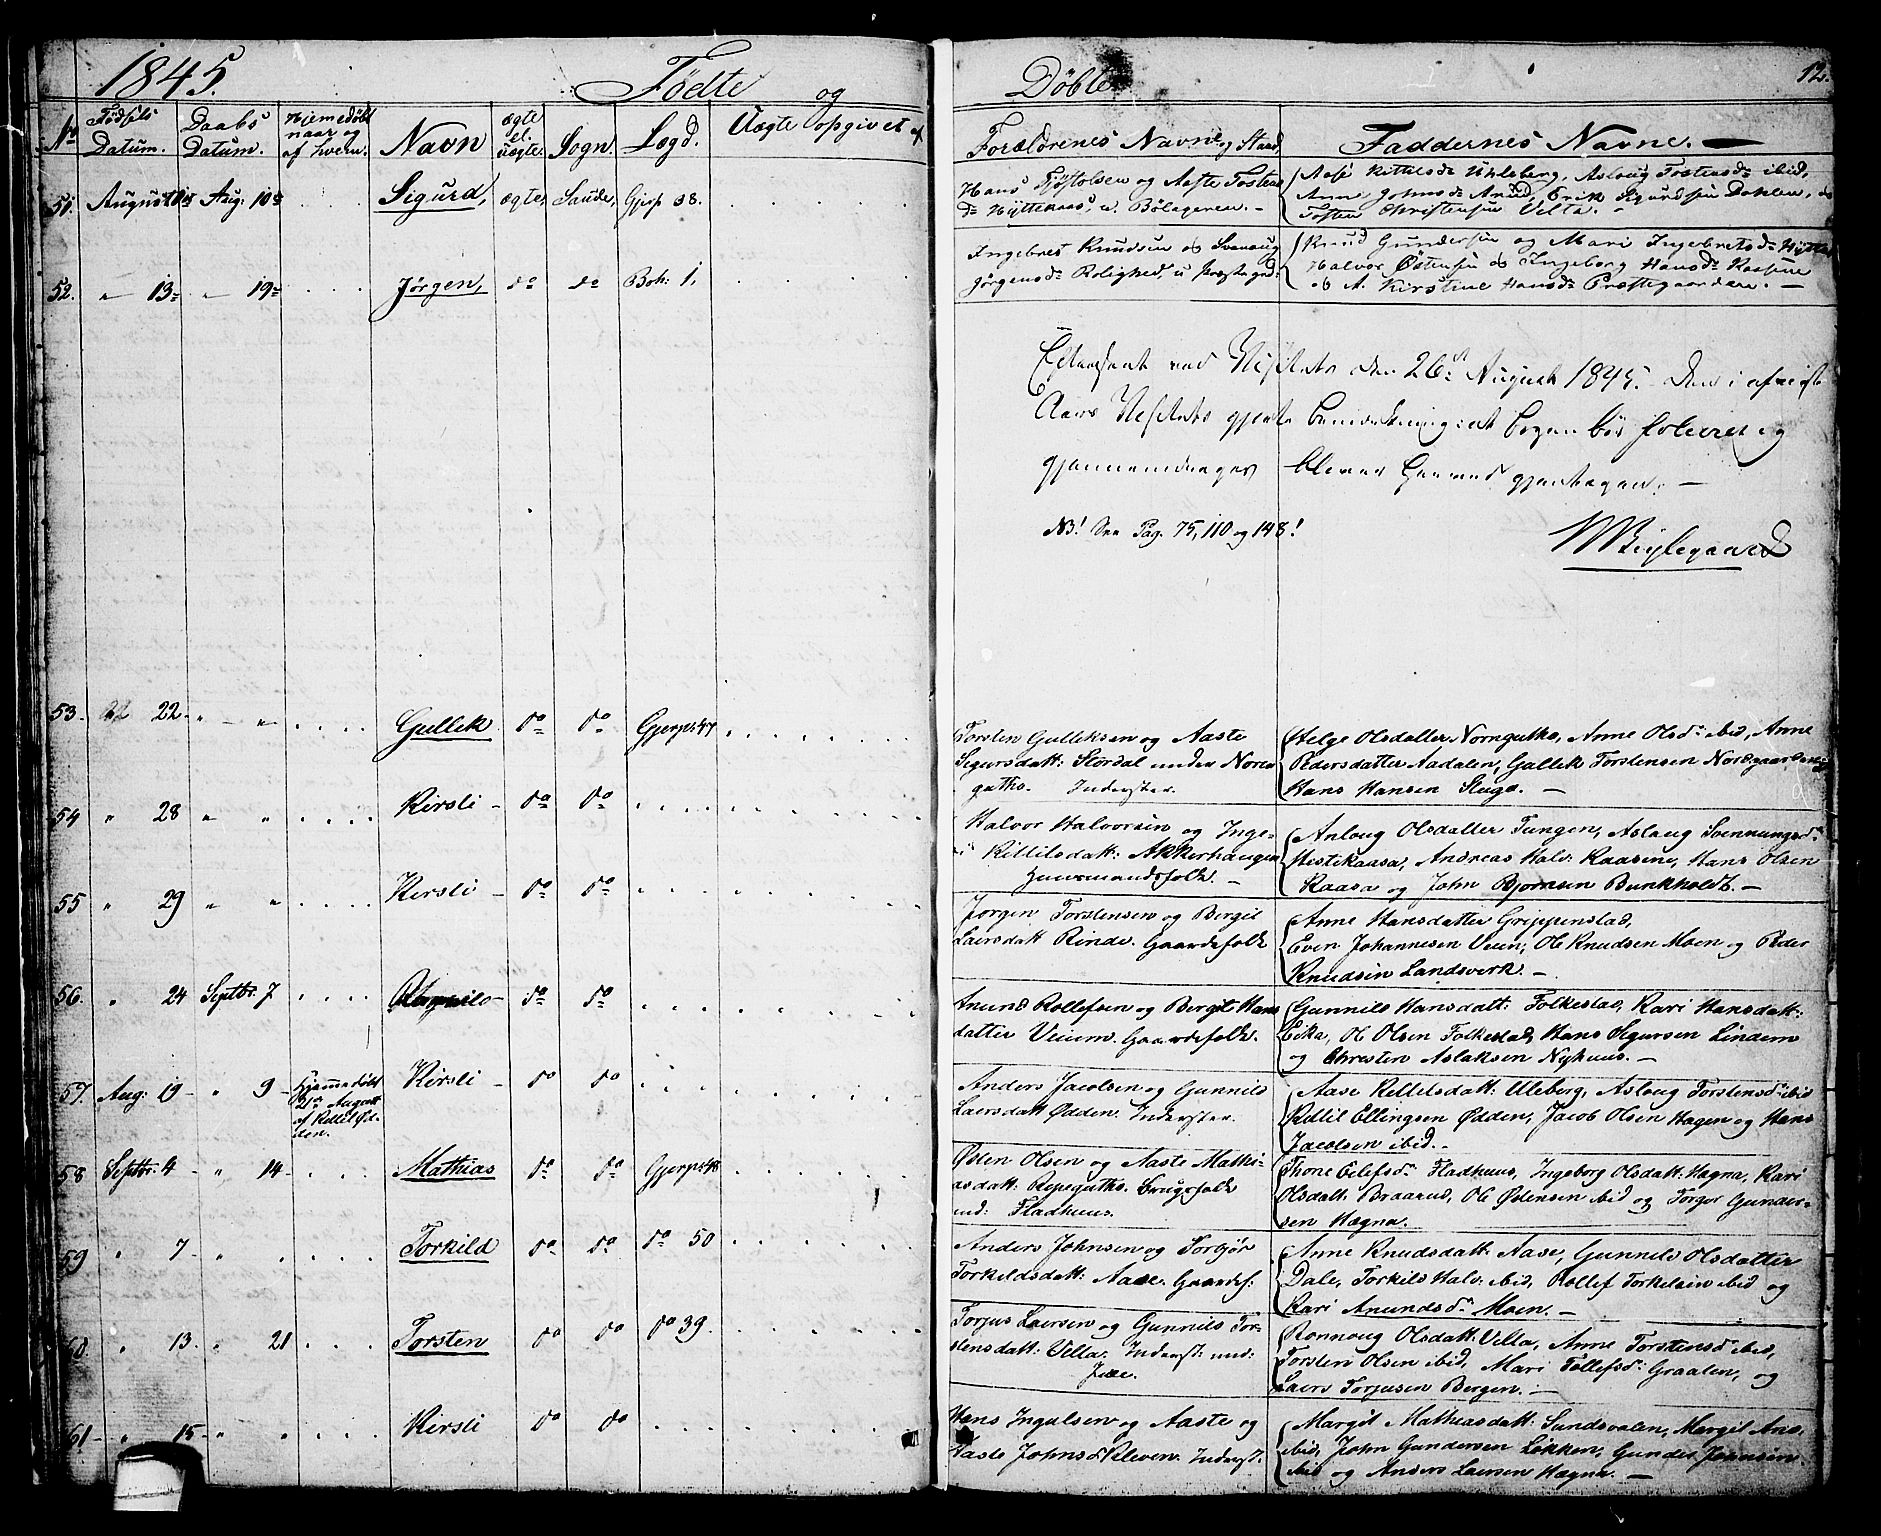 1845. Fødte og Døbte 12.
No Fødsels Datum. Daabs Datum. Hjemedøbt naar og af hvem. Navn ægte el. uægte. Sogn. Lægd. Uægte opgivet af Forældrenes Navne og Stand, Faddernes Navne. —
51. August 10 Aug: 10 Sigurd, ægte, Saude, Gjerp 38.
Hans Tjøstolsen og Aaste Tostens
d: Hyttekaas, u. Bølageren. —
Aase Kittilsd: Uhleberg, Aslaug Tostensd: ibid,
Anne Johnsd: Amund, Erik Sjgurdsen Dahlen, og
Tosten Christensen Velta. —
52. " 13 " 19 Jørgen, do do Boh: 1,
Ingebret Knudsen og Svanaug
Jørgensd: Rolighed, u Præstegrd:
Knud Gundersen og Mari Ingebretsd: Hytte
Halvor Østensen og Ingeborg Hansd: Kaasene
og A. Kirstine Hansd: Præstegaarden. —
Efterseet ved Visitats den 26de August 1845. Den i afvigte
Aars Visitats gjorte Bemærkning: at Bogen bør folieres og
gjennemdrages bliver herved gjentagen. —
NB! See Pag. 75, 110 og 148!
53. 22 Gullek do do Gjerp: 47
Torsten Gulleksen og Aaste
Sigursdatt: Stordal under Noren
gutho. Inderster.
Helge Olsdatter Norngutho, Anne Olsd: ibid, Anne
Pedersdatter Aadalen, Gullek Torstensen Nordgaarden
Hans Hansen Sluga. —
54 " 28 " " Kirsti do do
Halvor Halvorsen og Inge-
Kittilsdatt: Akkerhaugen
Huusmandsfolk. —
Anlaug Olsdatter Tungen, Aslaug Svennungsd:
Hestekaasa, Andreas Halv: Kaasene, Hans Olsen
Kaasa og John Bjørnsen Bunkholdt. —
55 " 29 " " Kirsti do do
Jørgen Torstensen og Bergit
Laersdatt Rinde. Gaardefolk
Anne Hansdatter Grippenstad,
Even Johannesen Veien, Ole Knudsen Moen og Peder
Knudsen Landsverk. —
56. " 24 Septbr. 7 do do
Anund Rollefsen og Bergit Hans
datter Veium. Gaardefolk.
Gunnild Hansdatt: Folkestad, Kari Hansdatt:
Eika, Ole Olsen Folkestad, Hans Sigursen Lindem
og Chresten Aslaksen Nyhuus. —
57. Aug: 19 " 9 Hjemmedøbt 21de August af Kittel Ødden. Kirsti do do
Anders Jacobsen og Gunnild
Laersdatt Ødden. Inderster.
Aase Kittilsdatt: Uleberg, Aslaug Torstensd: ibid
Kittil Ellingsen Ødden, Jacob Olsen Hagen og Hans
Jacobsen ibid. —
58 Septbr. 4 " 14 Mathias do do Gjerp: 48
Østen Olsen og Aaste Mathi-
asdatt: Brugsfolk
und: Fladhuus.
Thone Eilefsd: Fladhuus, Ingeborg Olsdatt: Hægna, Kari
Olsdatt. Braarud, Ole Østensen ibid og Torger Gunder-
sen Hægna.
59 " 7 " " Torkild do do do 50
Anders Johnsen og Torbjør
Torkildsdatt: Aase. Gaardef:
Anne Knudsdatt: Aase, Gunnild Olsdatter
Dale, Torkild Halv: ibid, Rollef Torkelsen ibid og
Kari Anundsd: Moen. —
60 " 13 " 21 Torsten do do do 39.
Torjus Laersen og Gunnild Tor-
stensdatt: Velta. Inderst: und:
Ronnoug Olsdatt: Velta, Anne Torstensd ibid,
Torsten Olsen ibid, Mari Tollefsd: Graaten, og
Laers Torjusen Bergen. —
61 " 15 " " Kirsti do do
Hans Ingulsen og Aaste og
Aaste Johnsd Kleven. Inderst.
Margit Mathiasdatt: Sundsvalen, Margit And.
ibid, John Gundersen Løkken, Gunder Johnsen
ibid og Anders Laersen Hægna. —